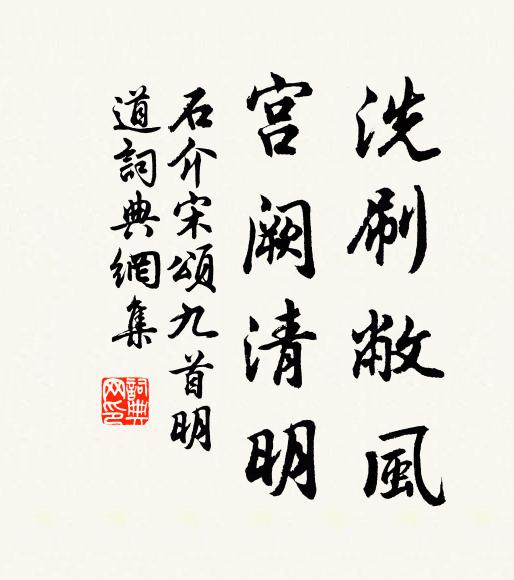 洗刷敝風
宫阙清明
石介宋頌九首明
道詞典網集
詞典网印